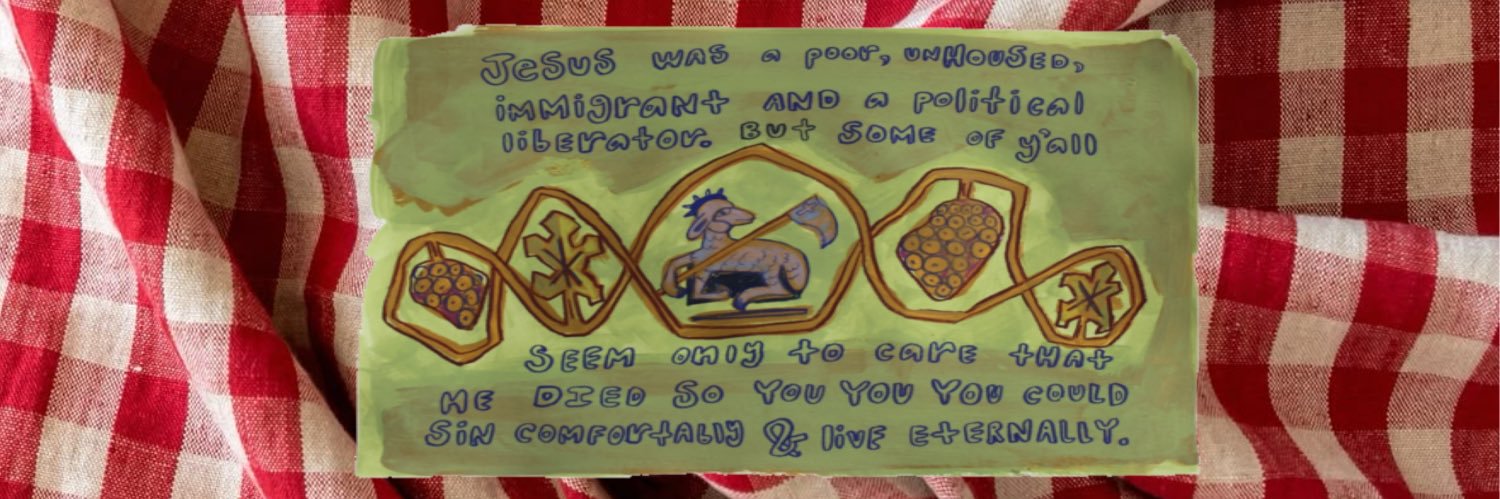 Jesus was a poor, unHoused,
immigrant and a political
liberator. But some of y'all
Seem only to care that
He died so you you you could
Sin comfortably & live eternally.